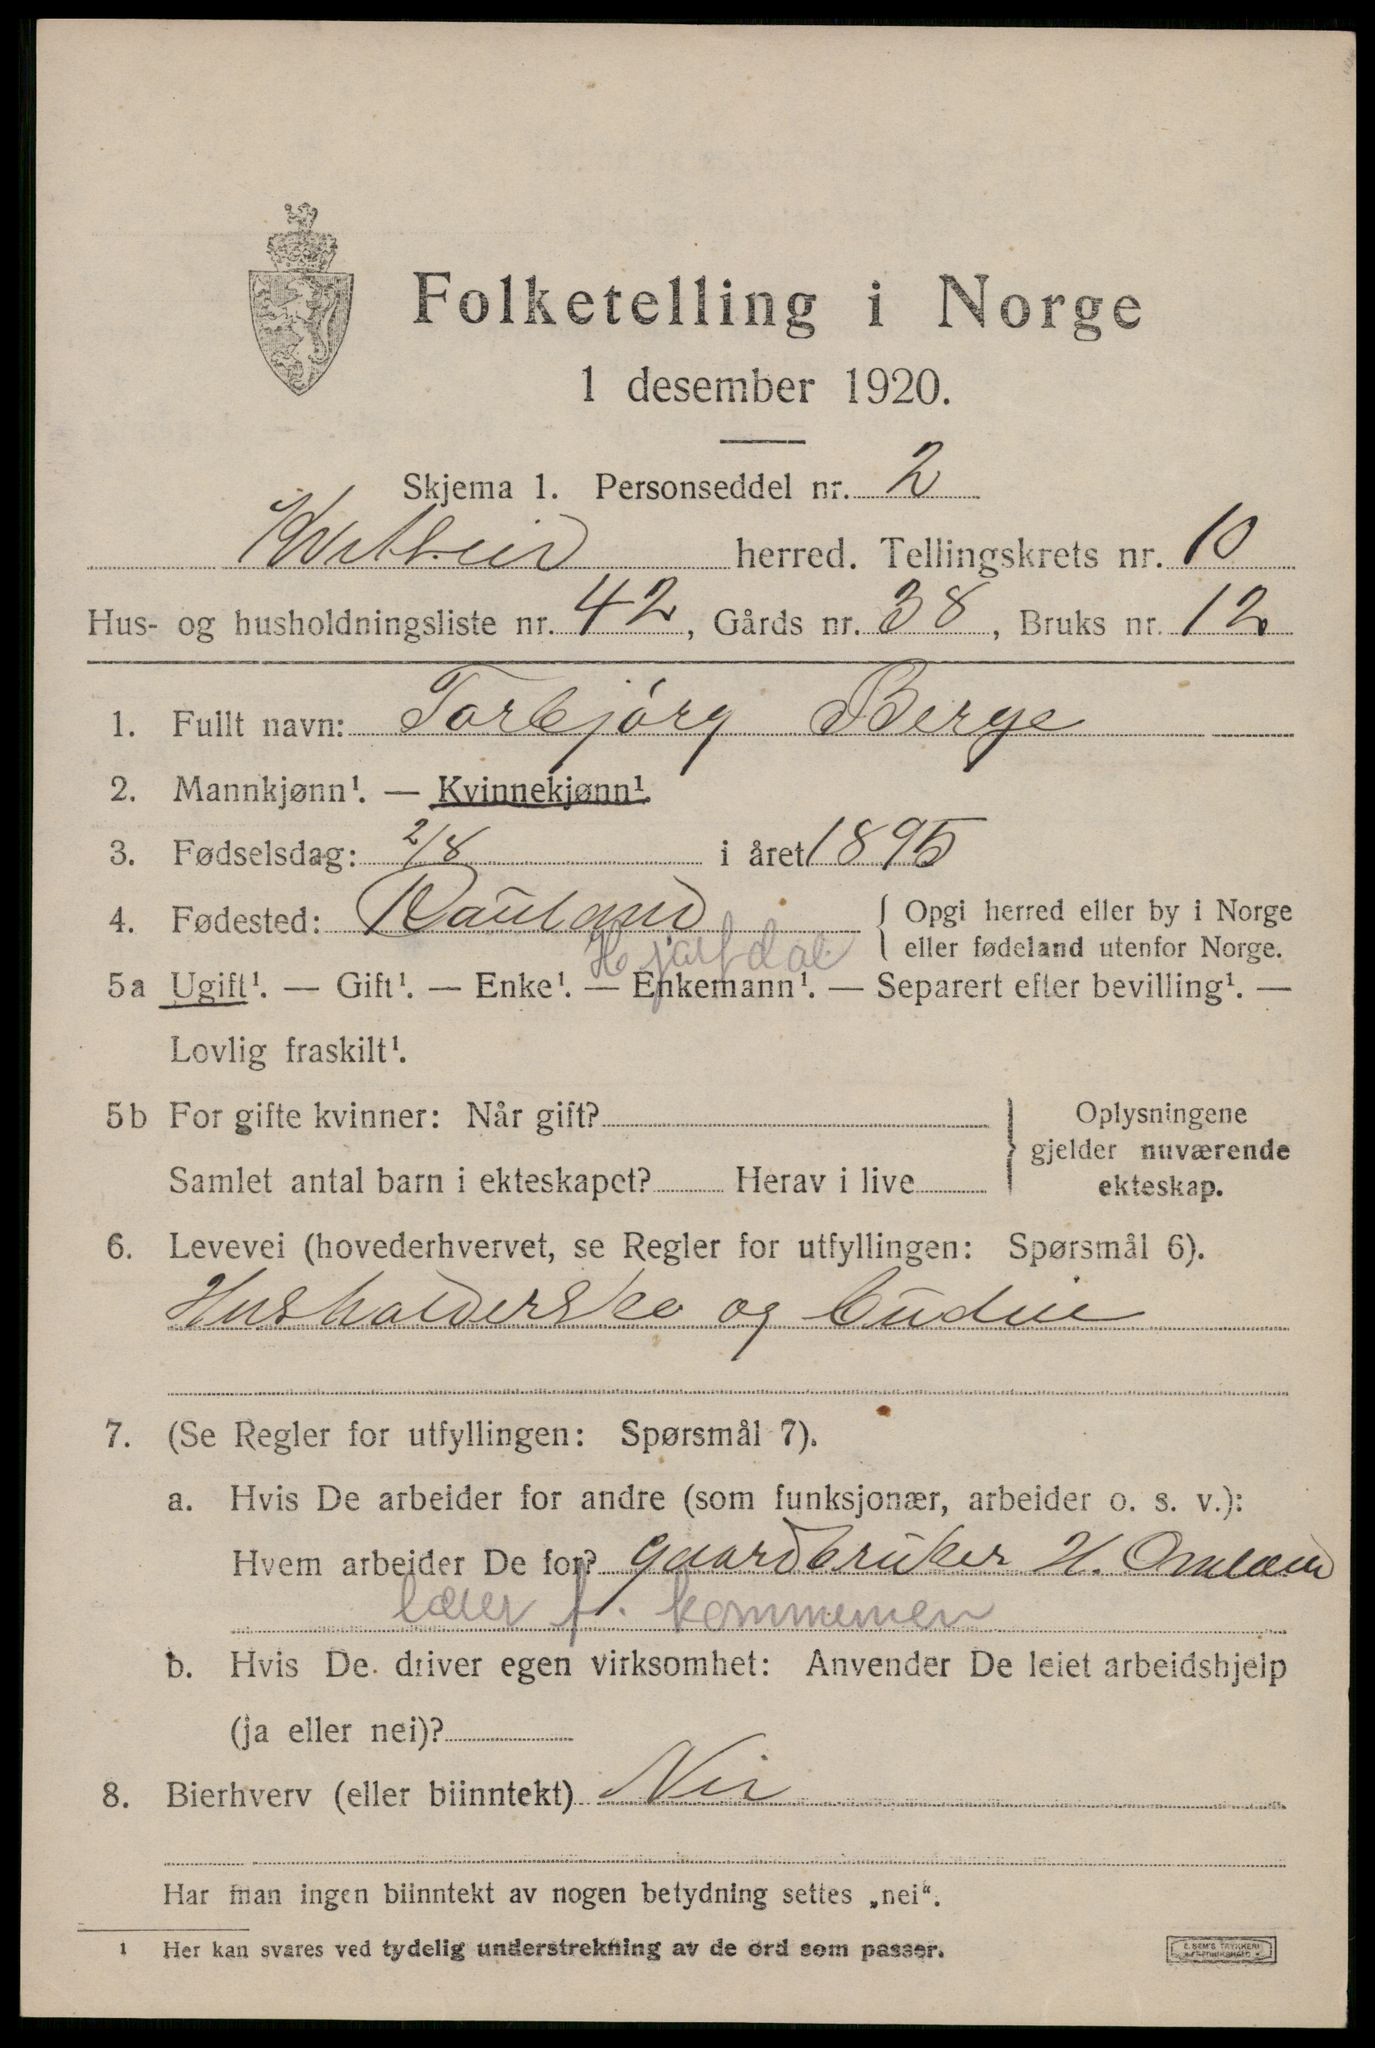 Folketelling i Norge
1 desember 1920.
Skjema 1. Personseddel nr. 2
Kviteseid herred. Tellingskrets nr. 10
Hus- og husholdningsliste nr. 42, Gårds nr. 38, Bruks nr. 12
1. Fullt navn: Torbjörg Berge
2. Mannkjønn¹. — Kvinnekjønn¹.
3. Fødselsdag: 2/8 i året 1895
4. Fødested: Rauland { Opgi herred eller by i Norge
Hjartdal eller fødeland utenfor Norge.
5a Ugift¹. — Gift¹. — Enke¹. — Enkemann¹. — Separert efter bevilling¹. —
Lovlig fraskilt¹.
5b For gifte kvinner: Når gift? } Oplysningene
gjelder nuværende
Samlet antal barn i ekteskapet? Herav i live ekteskap.
6. Levevei (hovederhvervet, se Regler for utfyllingen: Spørsmål 6).
Husholderske og
7. (Se Regler for utfyllingen: Spørsmål 7).
a. Hvis De arbeider for andre (som funksjonær, arbeider o. s. v.):
Hvem arbeider De for? gaardbruker H. Omland
f. kommunen
b. Hvis De driver egen virksomhet: Anvender De leiet arbeidshjelp
(ja eller nei)?
8. Bierhverv (eller biinntekt) Nei
Har man ingen biinntekt av nogen betydning settes „nei“.
1 Her kan svares ved tydelig understrekning av de ord som passer.